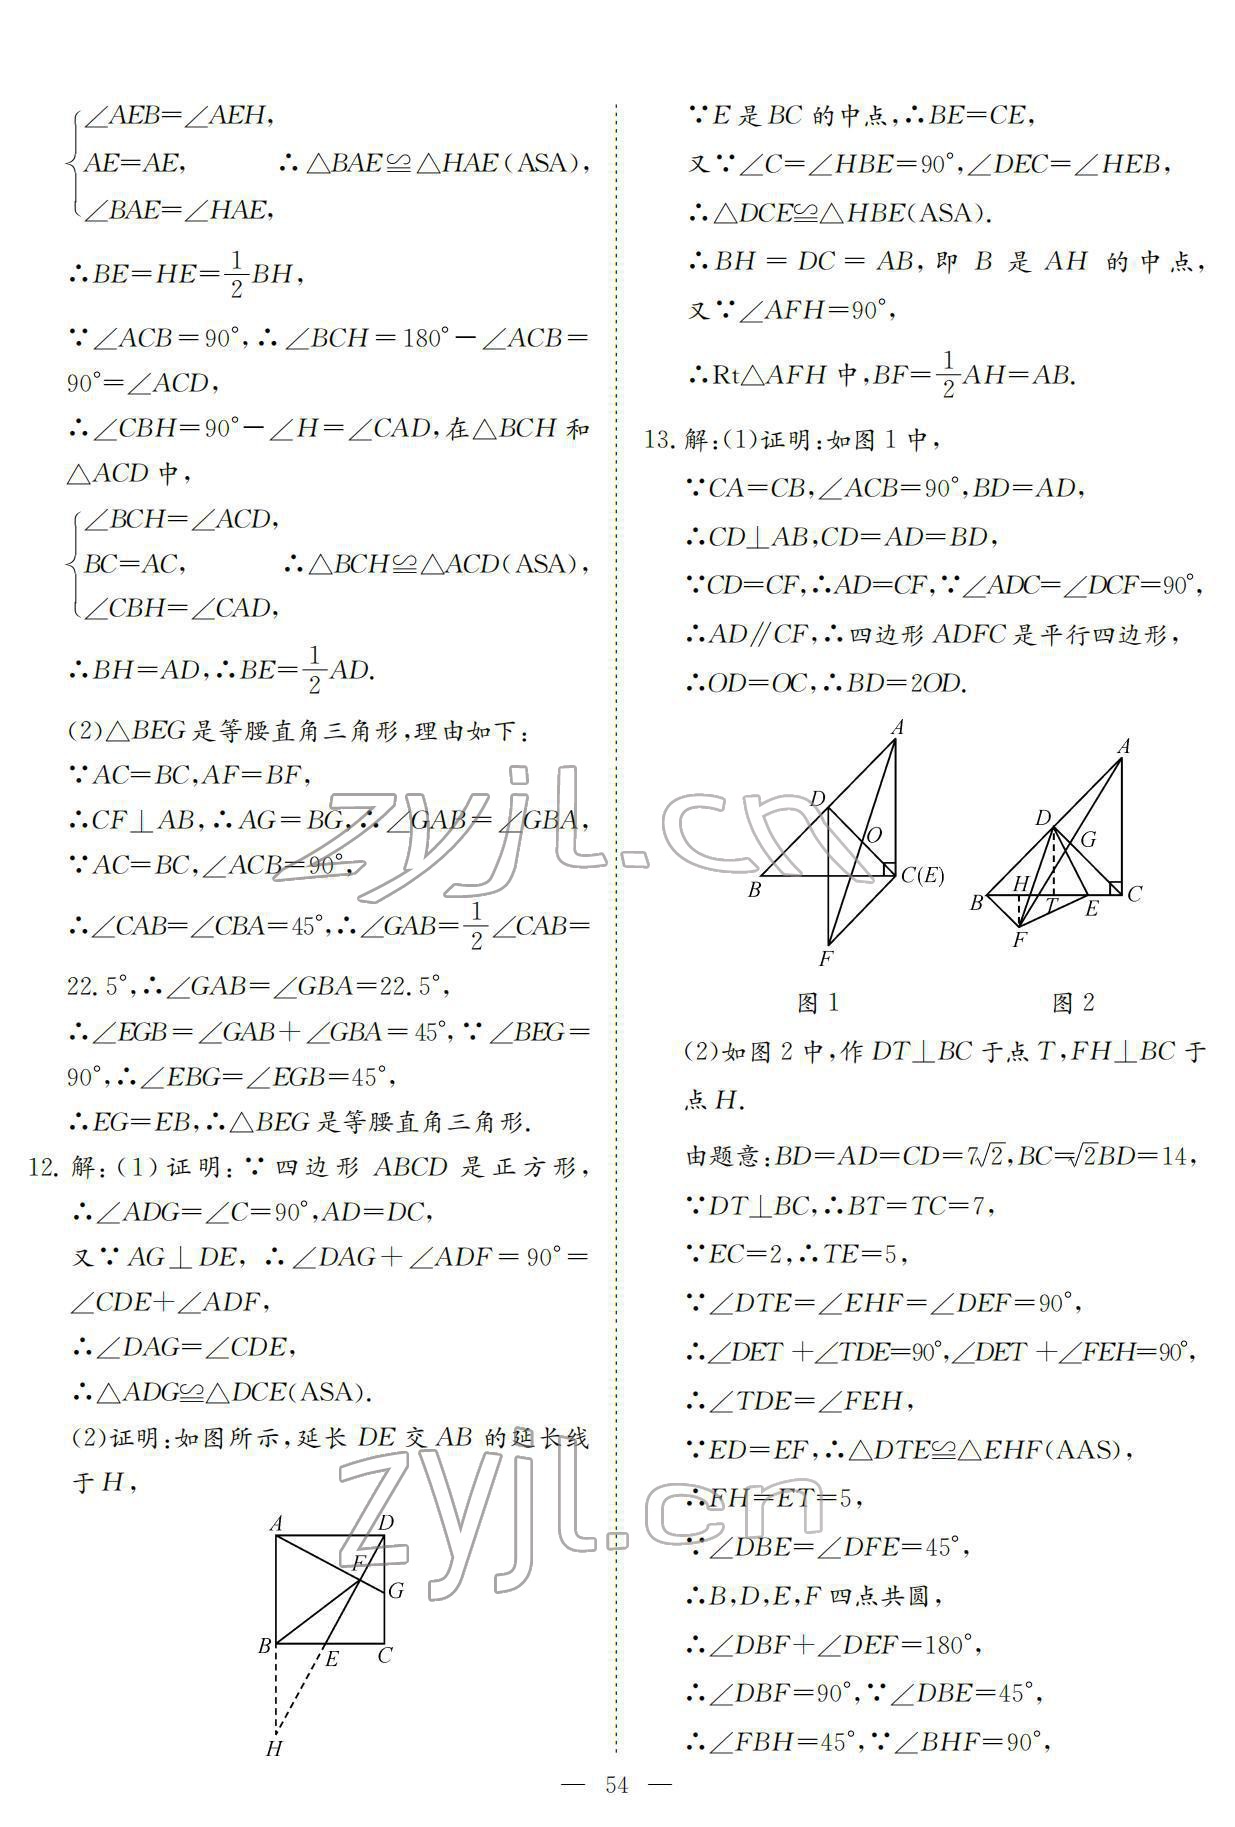 ∠AEB=∠AEH,
AE=AE, ∴△BAE≌△HAE(ASA),
∠BAE=∠HAE,
∴BE=HE=1/2BH,
∵∠ACB=90°,∴∠BCH=180°-∠ACB=
90°=∠ACD,
∴∠CBH=90°-∠H=∠CAD,在△BCH和
△ACD中,
∠BCH=∠ACD,
BC=AC, ∴△BCH≌△ACD(ASA),
∠CBH=∠CAD,
∴BH=AD,∴BE=1/2AD.
(2)△BEG是等腰直角三角形,理由如下:
∵AC=BC,AF=BF,
∴CF⊥AB,∴AG=BG,∴∠GAB=∠GBA,
∵AC=BC,∠ACB=90°,
∴∠CAB=∠CBA=45°,∴∠GAB=1/2∠CAB=
22.5°,∴∠GAB=∠GBA=22.5°,
∴∠EGB=∠GAB+∠GBA=45°,∵∠BEG=
90°,∴∠EBG=∠EGB=45°,
∴EG=EB,∴△BEG是等腰直角三角形.
12.解:(1)证明:∵四边形ABCD是正方形,
∴∠ADG=∠C=90°,AD=DC,
又∵AG⊥DE,∴∠DAG+∠ADF=90°=
∠CDE+∠ADF,
∴∠DAG=∠CDE,
∴△ADG≌△DCE(ASA).
(2)证明:如图所示,延长DE交AB的延长线
于H,
A D
F
G
B E C
H
∵E是BC的中点,∴BE=CE,
又∵∠C=∠HBE=90°,∠DEC=∠HEB,
∴△DCE≌△HBE(ASA).
∴BH=DC=AB,即B是AH的中点,
又∵∠AFH=90°,
∴Rt△AFH中,BF=1/2AH=AB.
13.解:(1)证明:如图1中,
∵CA=CB,∠ACB=90°,BD=AD,
∴CD⊥AB,CD=AD=BD,
∵CD=CF,∴AD=CF,∵∠ADC=∠DCF=90°,
∴AD∥CF,∴四边形ADFC是平行四边形,
∴OD=OC,∴BD=2OD.
A
D
O
B C(E)
F
图1
A
D
G
B H T E C
F
图2
(2)如图2中,作DT⊥BC于点T,FH⊥BC于
点H.
由题意:BD=AD=CD=7√2,BC=√2BD=14,
∵DT⊥BC,∴BT=TC=7,
∵EC=2,∴TE=5,
∵∠DTE=∠EHF=∠DEF=90°,
∴∠DET+∠TDE=90°,∠DET+∠FEH=90°,
∴∠TDE=∠FEH,
∵ED=EF,∴△DTE≌△EHF(AAS),
∴FH=ET=5,
∵∠DBE=∠DFE=45°,
∴B,D,E,F四点共圆,
∴∠DBF+∠DEF=180°,
∴∠DBF=90°,∵∠DBE=45°,
∴∠FBH=45°,∵∠BHF=90°,
— 54 —
zyjl.cn
zyjl.cn